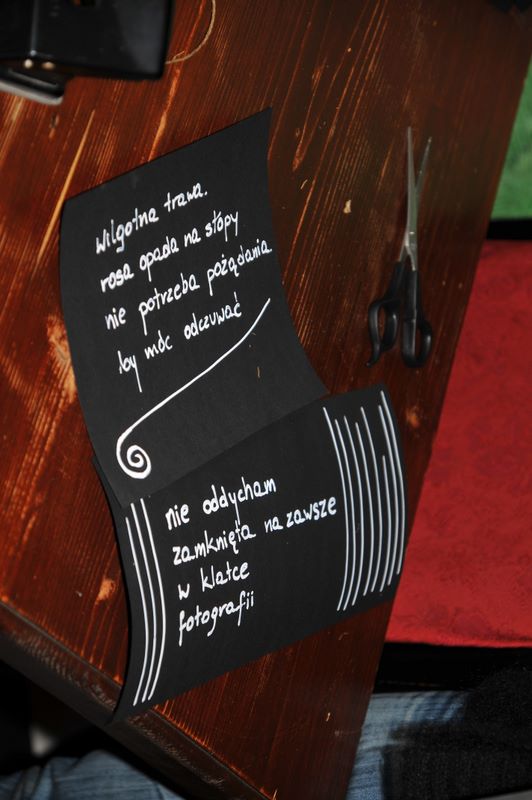 Wilgotna trawa.
rosa opada na stópy
nie potrzeba pożądania
by móc odczuwać
nie oddycham
zamknięta na zawsze
w klatce
fotografii